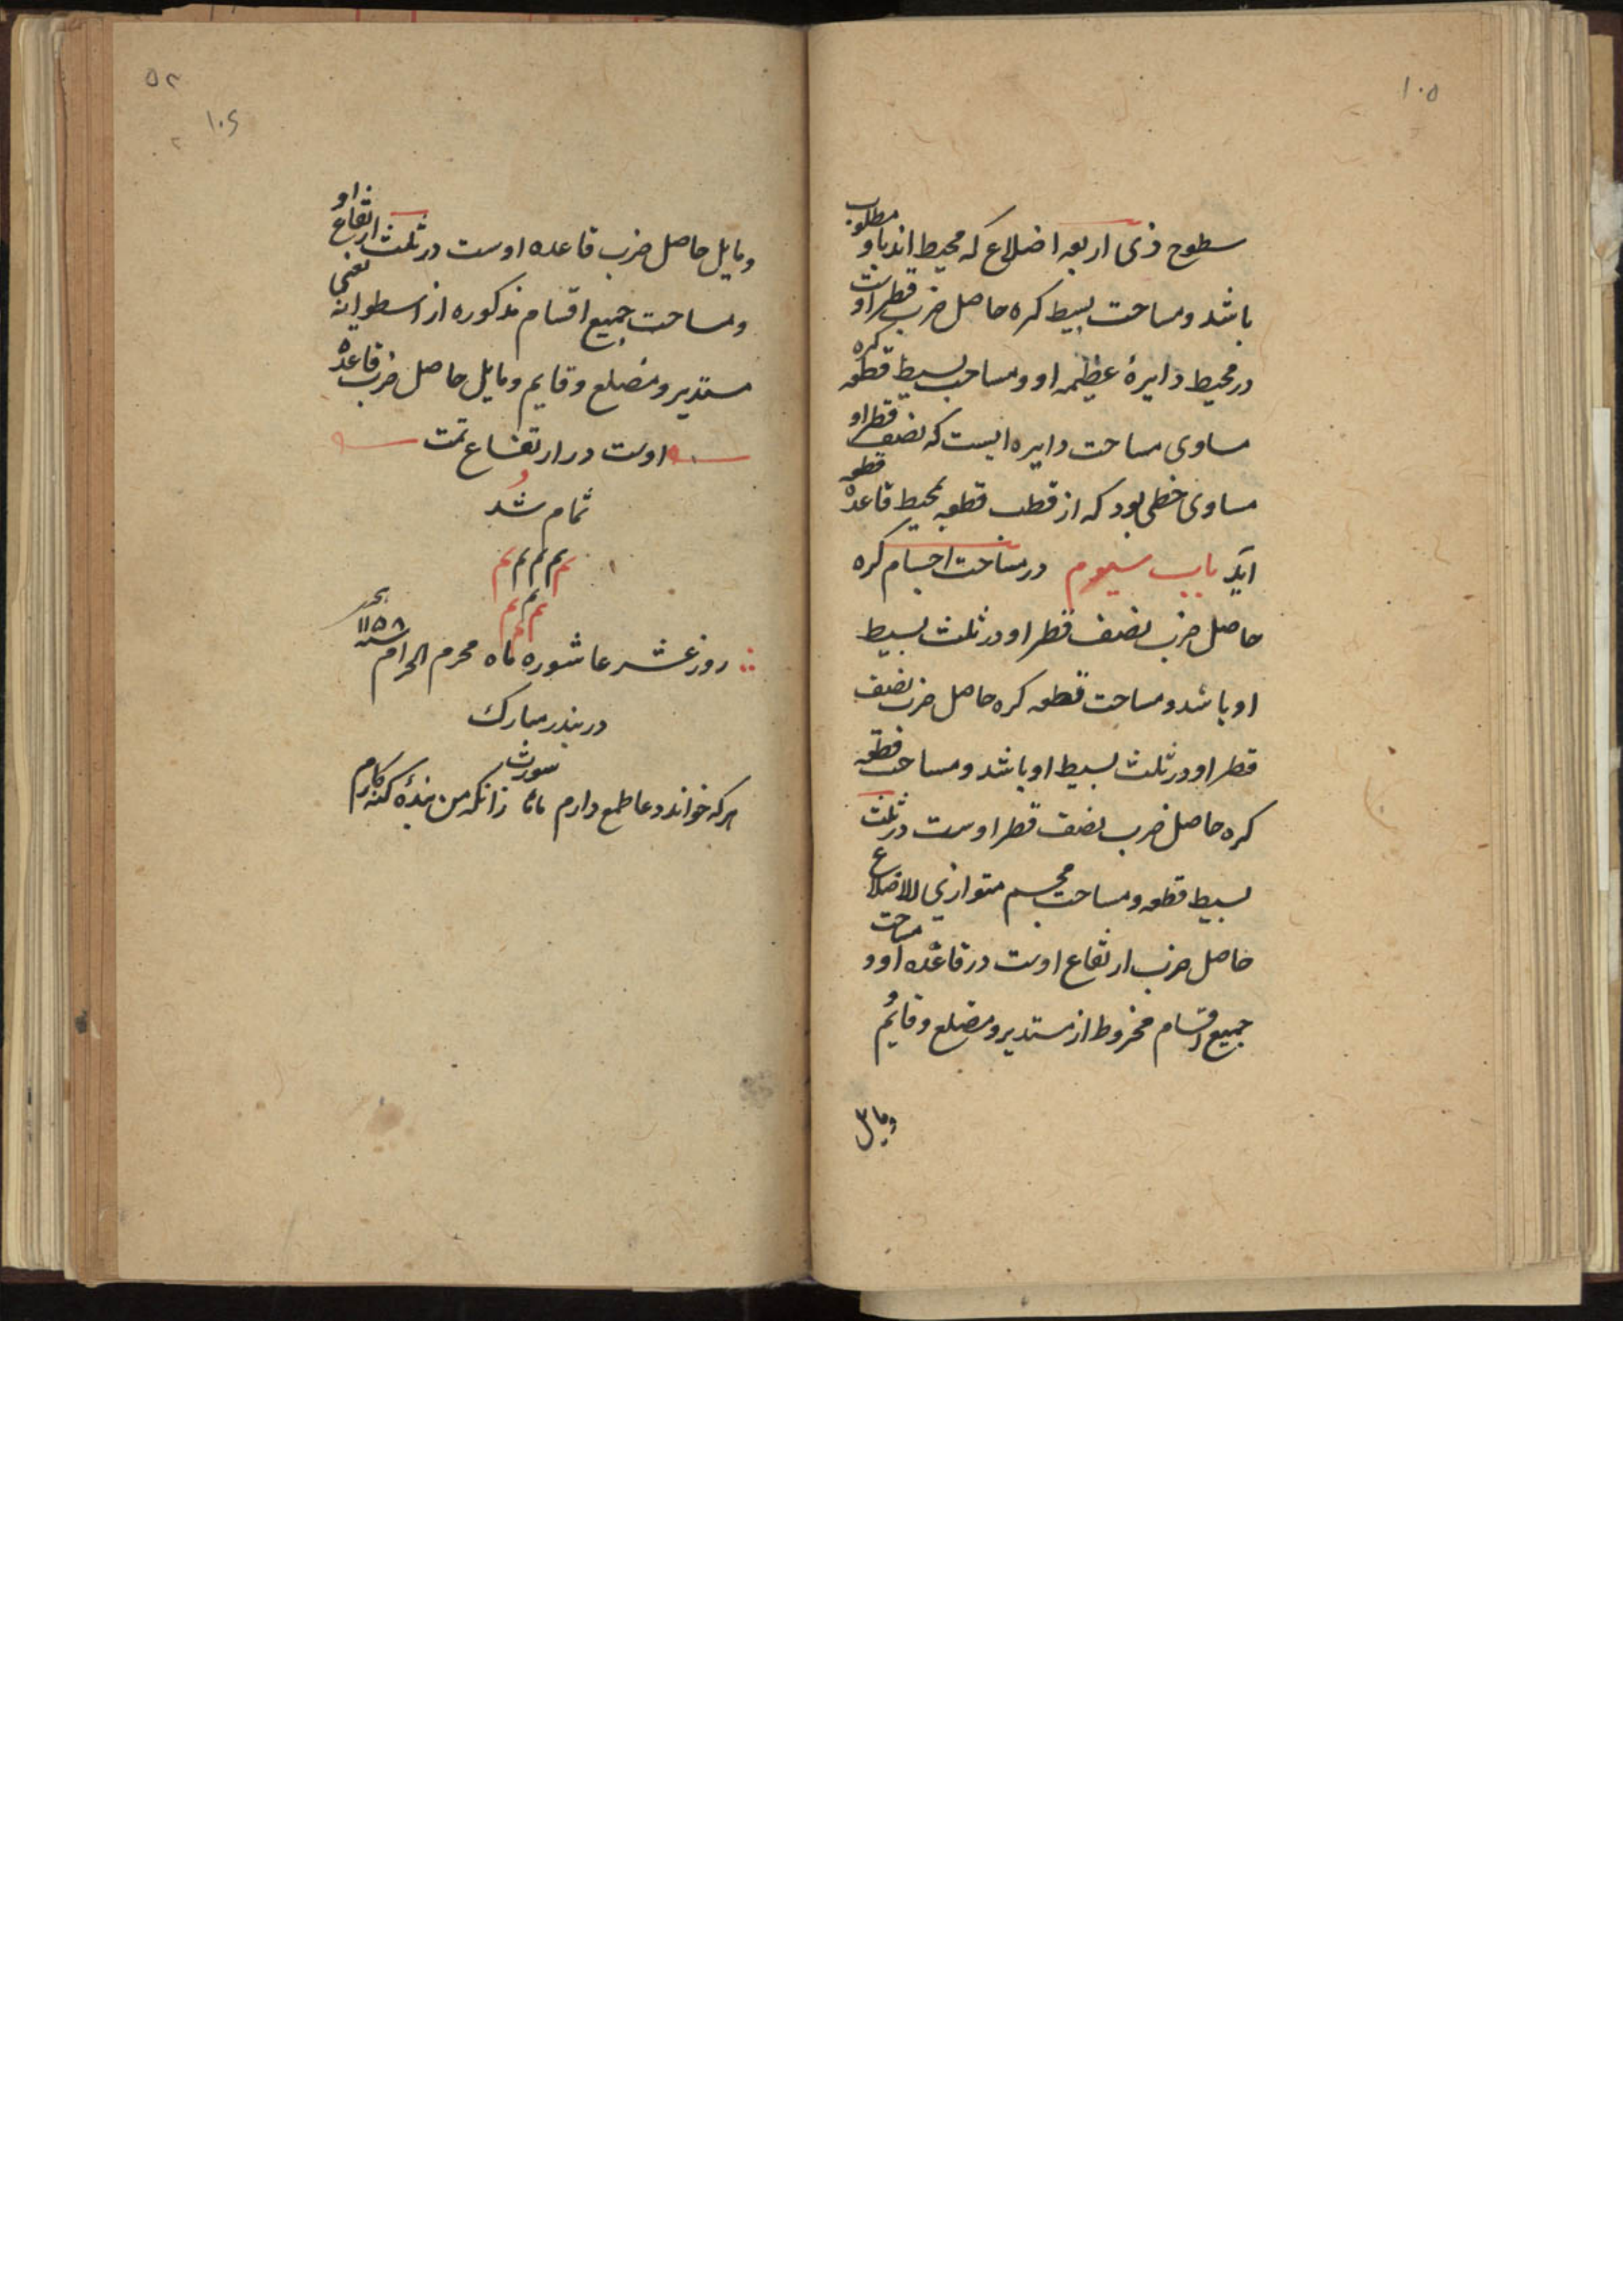 ۱۰۵
سطوح ذی اربعه اضلاع که محیط اند باو مطلوب
باشد و مساحت بسیط کره حاصل ضرب قطر اوست
در محیط دایرهٔ عظیمه او و مساحت بسیط قطعه کره
مساوی مساحت دایره ایست که نصف قطر او
مساوی خطی بود که از قطب قطعه بمحیط قاعده قطعه
آید باب سیوم در مساحت اجسام کره
حاصل ضرب نصف قطر او در ثلث بسیط
او باشد و مساحت قطعه کره حاصل ضرب نصف
قطر او در ثلث بسیط او باشد و مساحت قطعه
کره حاصل ضرب نصف قطر اوست در ثلث
بسیط قطعه و مساحت مجسم متوازی الاضلاع
حاصل ضرب ارتفاع اوست در قاعده او و مساحت
جمیع اقسام مخروط از مستدیر و مضلع و قایم
ومایل
۵۲
۱۰۶
۲
ومایل حاصل ضرب قاعده اوست در ثلث ارتفاع او
و مساحت جمیع اقسام مذکوره از اسطوانه یعنی
مستدیر و مضلع و قایم ومایل حاصل ضرب قاعده
اوست در ارتفاع تمت
تمام شد
م م م م م
م م م
روز عشر عاشوره ماه محرم الحرام سنه ۱۱۵۸
در بندر مبارک
سورت
هرکه خواند دعا طمع دارم زانکه من بندهٔ گنه کارم